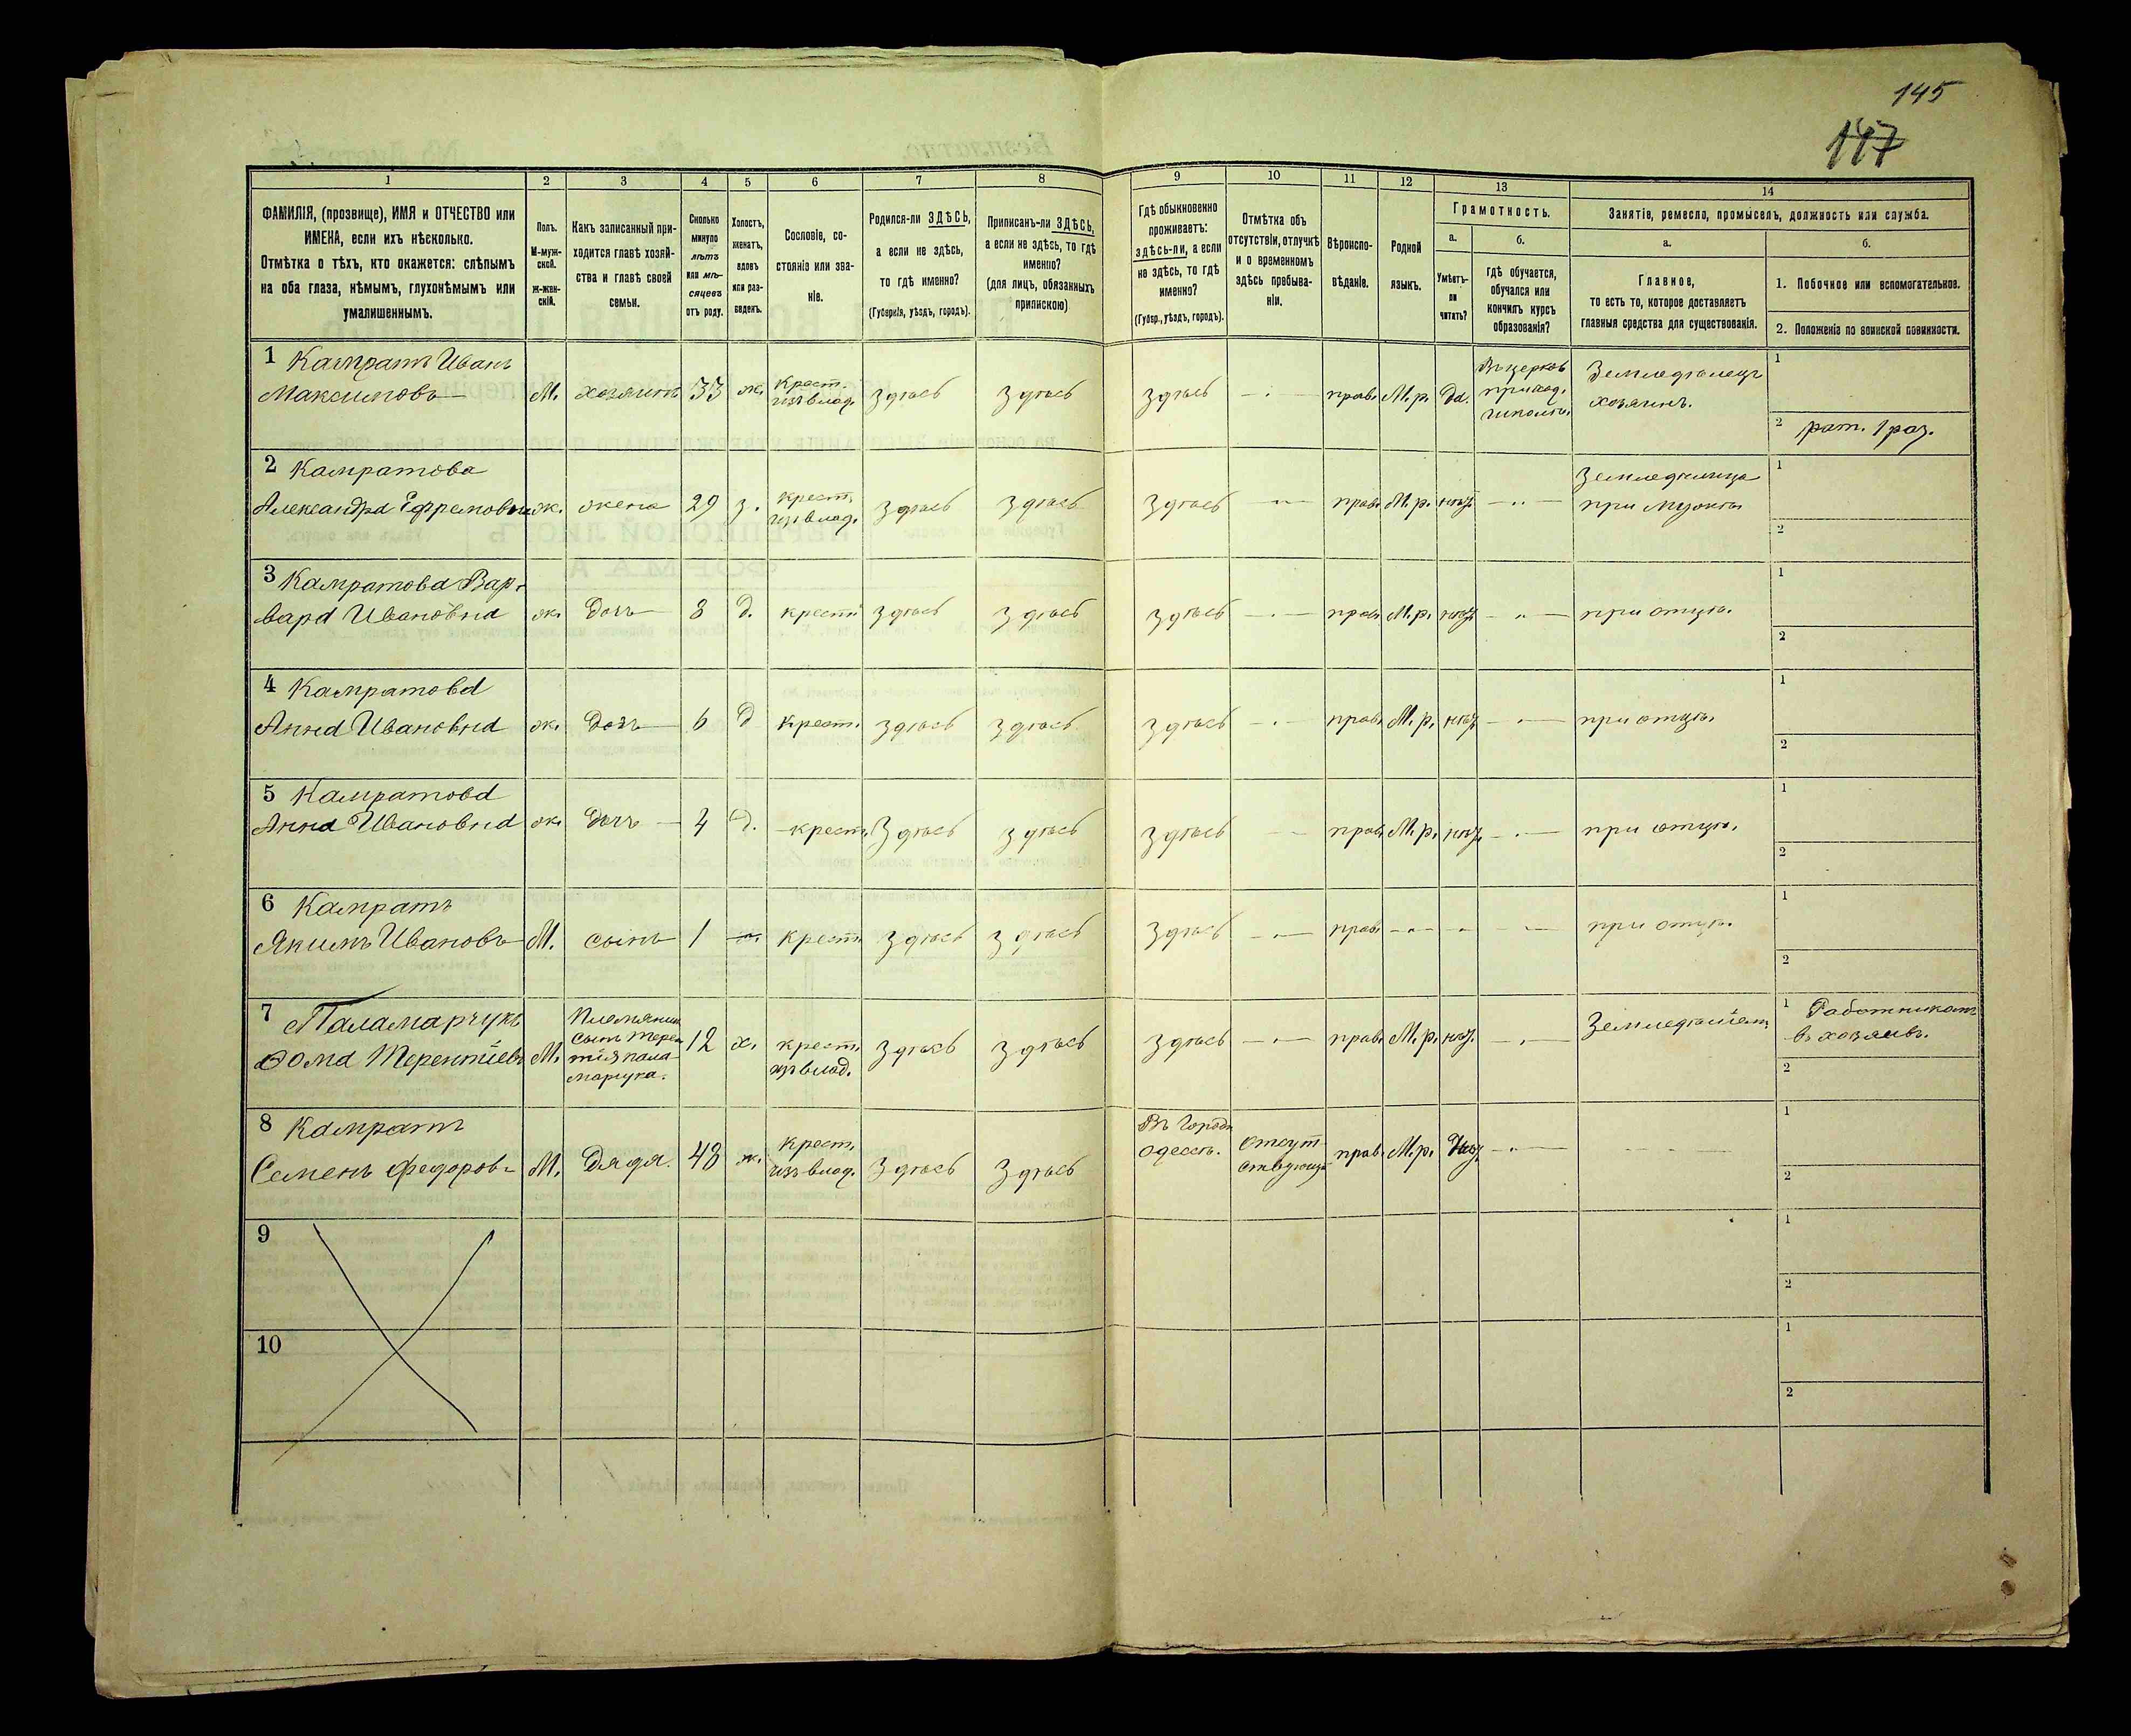 145
147
1 2 3 4 5 6 7 8 9 10 11 12 13 14
ФАМИЛІЯ, (прозвище), ИМЯ и ОТЧЕСТВО или
ИМЕНА, если ихъ нѣсколько.
Отмѣтка о тѣхъ, кто окажется: слѣпымъ
на оба глаза, нѣмымъ, глухонѣмымъ или
умалишеннымъ.
Полъ.
М-муж-
ской.
Ж-жен-
скій.
Какъ записанный при-
ходится главѣ хозяй-
ства и главѣ своей
семьи.
Сколько
минуло
лѣтъ
или мѣ-
сяцевъ
отъ роду.
Холостъ,
женатъ,
вдовъ
или раз-
веденъ.
Сословіе, со-
стояніе или зва-
ніе.
Родился-ли ЗДѢСЬ,
а если не здѣсь,
то гдѣ именно?
(Губернія, уѣздъ, городъ).
Приписанъ-ли ЗДѢСЬ,
а если не здѣсь, то гдѣ
именно?
(для лицъ, обязанныхъ
припискою)
Гдѣ обыкновенно
проживаетъ:
здѣсь-ли, а если
не здѣсь, то гдѣ
именно?
(Губер., уѣздъ, городъ).
Отмѣтка объ
отсутствіи, отлучкѣ
и о временномъ
здѣсь пребыва-
ніи.
Вѣроиспо-
вѣданіе.
Родной
языкъ.
Грамотность.
а.
Умѣетъ-
ли
читать?
б.
Гдѣ обучается,
обучался или
кончилъ курсъ
образованія?
Занятіе, ремесло, промыселъ, должность или служба.
а.
Главное,
то есть то, которое доставляетъ
главныя средства для существованія.
б.
1. Побочное или вспомогательное.
2. Положеніе по воинской повинности.
1 Кампратъ Иванъ
Максимовъ М. хозяинъ 33 ж. Крест. изъ влад. здѣсь здѣсь здѣсь прав. М.р. да. Въ церков приход. школѣ Земледѣлецъ хозяинъ. 1
2 рат. 1 раз.
2 Кампратова
Александра Ефремовна ж. жена 29 з. крест. изъ влад. здѣсь здѣсь здѣсь прав. М.р. нѣт при мужѣ 1
2
3 Кампратова Вар-
вара Ивановна ж. дочь 8 д. крест. здѣсь здѣсь здѣсь прав. М.р. нѣт при отцѣ. 1
2
4 Кампратова
Анна Ивановна ж. дочь 6 д крест. здѣсь здѣсь здѣсь прав. М.р. нѣт при отцѣ. 1
2
5 Кампратова
Анна Ивановна ж. дочь 4 д. крест. Здѣсь здѣсь здѣсь прав. М.р. нѣт при отцѣ. 1
2
6 Кампратъ
Якимъ Ивановъ М. сынъ 1 крест. здѣсь здѣсь здѣсь прав. при отцѣ. 1
2
7 Паламарчукъ
Ѳома Терентіевъ М. Племяник сынъ Терен тія Пала- марчука. 12 х. крест. изъ влад. здѣсь здѣсь здѣсь прав. М.р. нѣт. 1 Работникомъ
2
8 Кампратъ
Семенъ Федоровъ М. Дядя. 48 ж. крест. изъ влад. здѣсь здѣсь Въ городѣ Одессѣ. отсут- ствующій прав. М.р. 1
2
9 1
2
10 1
2